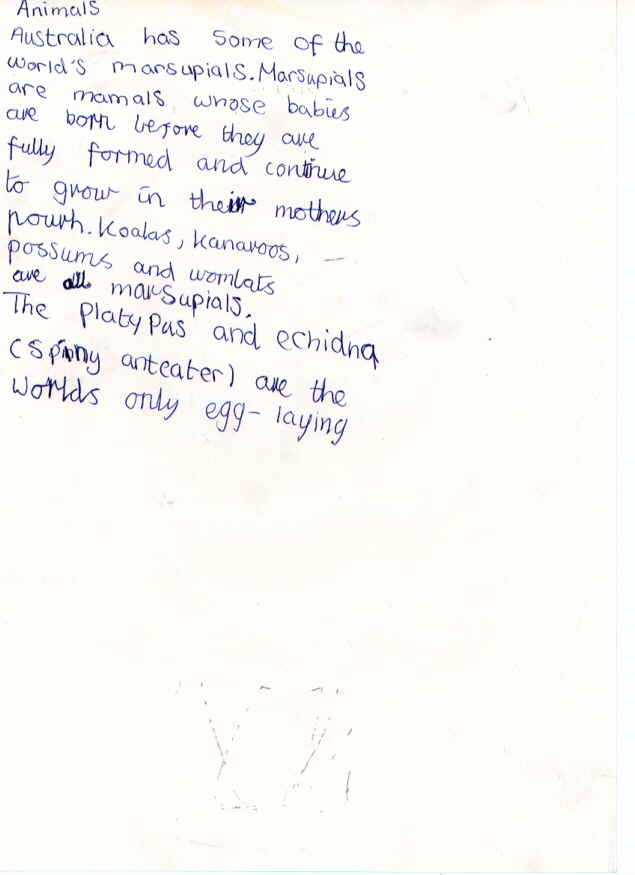 Animals
Australia has some of the
world's marsupials. Marsupials
are mamals whose babies
are born before they are
fully formed and continue
to grow in their mothers
pourh. Koalas, kanaroos,
possums and wombats
are all marsupials.
The platypus and echidna
(spinny anteater) are the
worlds only egg-laying